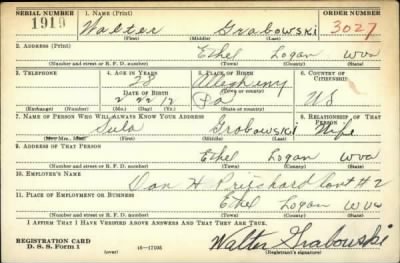 SERIAL NUMBER 1. NAME (Print) ORDER NUMBER
1919 Walter Grabowski 3027
(First) (Middle) (Last)
2. ADDRESS (Print)
Ethel Logan WVa
(Number and street or R. F. D. number) (Town) (County) (State)
3. TELEPHONE 4. AGE IN YEARS 5. PLACE OF BIRTH 6. COUNTRY OF CITIZENSHIP
28 Allegheny
(Town or county)
DATE OF BIRTH
2 22 12 Pa US
(Exchange) (Number) (Mo.) (Day) (Yr.) (State or country)
7. NAME OF PERSON WHO WILL ALWAYS KNOW YOUR ADDRESS 8. RELATIONSHIP OF THAT PERSON
Sula Grabowski Wife
(Mr., Mrs., Miss) (First) (Middle) (Last)
9. ADDRESS OF THAT PERSON
Ethel Logan WVa
(Number and street or R. F. D. number) (Town) (County) (State)
10. EMPLOYER'S NAME
Dan H Pritchard Cont #2
11. PLACE OF EMPLOYMENT OR BUSINESS
Ethel Logan WVa
(Number and street or R. F. D. number) (Town) (County) (State)
I AFFIRM THAT I HAVE VERIFIED ABOVE ANSWERS AND THAT THEY ARE TRUE.
REGISTRATION CARD
D. S. S. Form 1 (over) 16—17105 Walter Grabowski
(Registrant's signature)